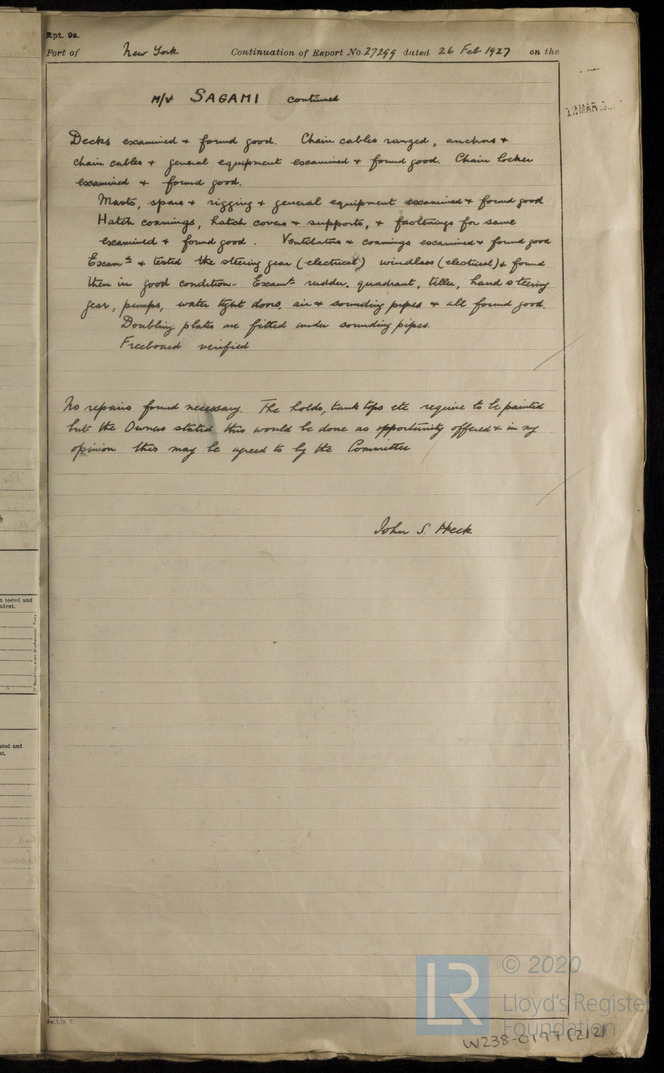 Rpt. 9a.
Port of New York Continuation of Report No 27299 dated 26 Feb 1927 on the
12 MAR.
M/V SAGAMI continued
Decks examined & found good. Chain cables ranged, anchors &
chain cables & general equipment examined & found good. Chain locker
examined & found good.
Masts, spars & rigging & general equipment examined & found good
Hatch coamings, hatch covers & supports, & fastenings for same
examined & found good. Ventilators & coamings examined & found good
Exam^d & tested the steering gear (electrical) windlass (electrical) & found
them in good condition. Exam^d rudder, quadrant, tiller, hand steering
gear, pumps, water tight doors, air & sounding pipes & all found good.
Doubling plates are fitted under sounding pipes.
Freeboard verified
No repairs found necessary. The holds, tank tops etc require to be painted
but the Owners stated this would be done as opportunity offered & in my
opinion this may be agreed to by the Committee
John S. Heck
LR
© 2020
Lloyd's Registe
Foundation
W238-0197 (2/2)